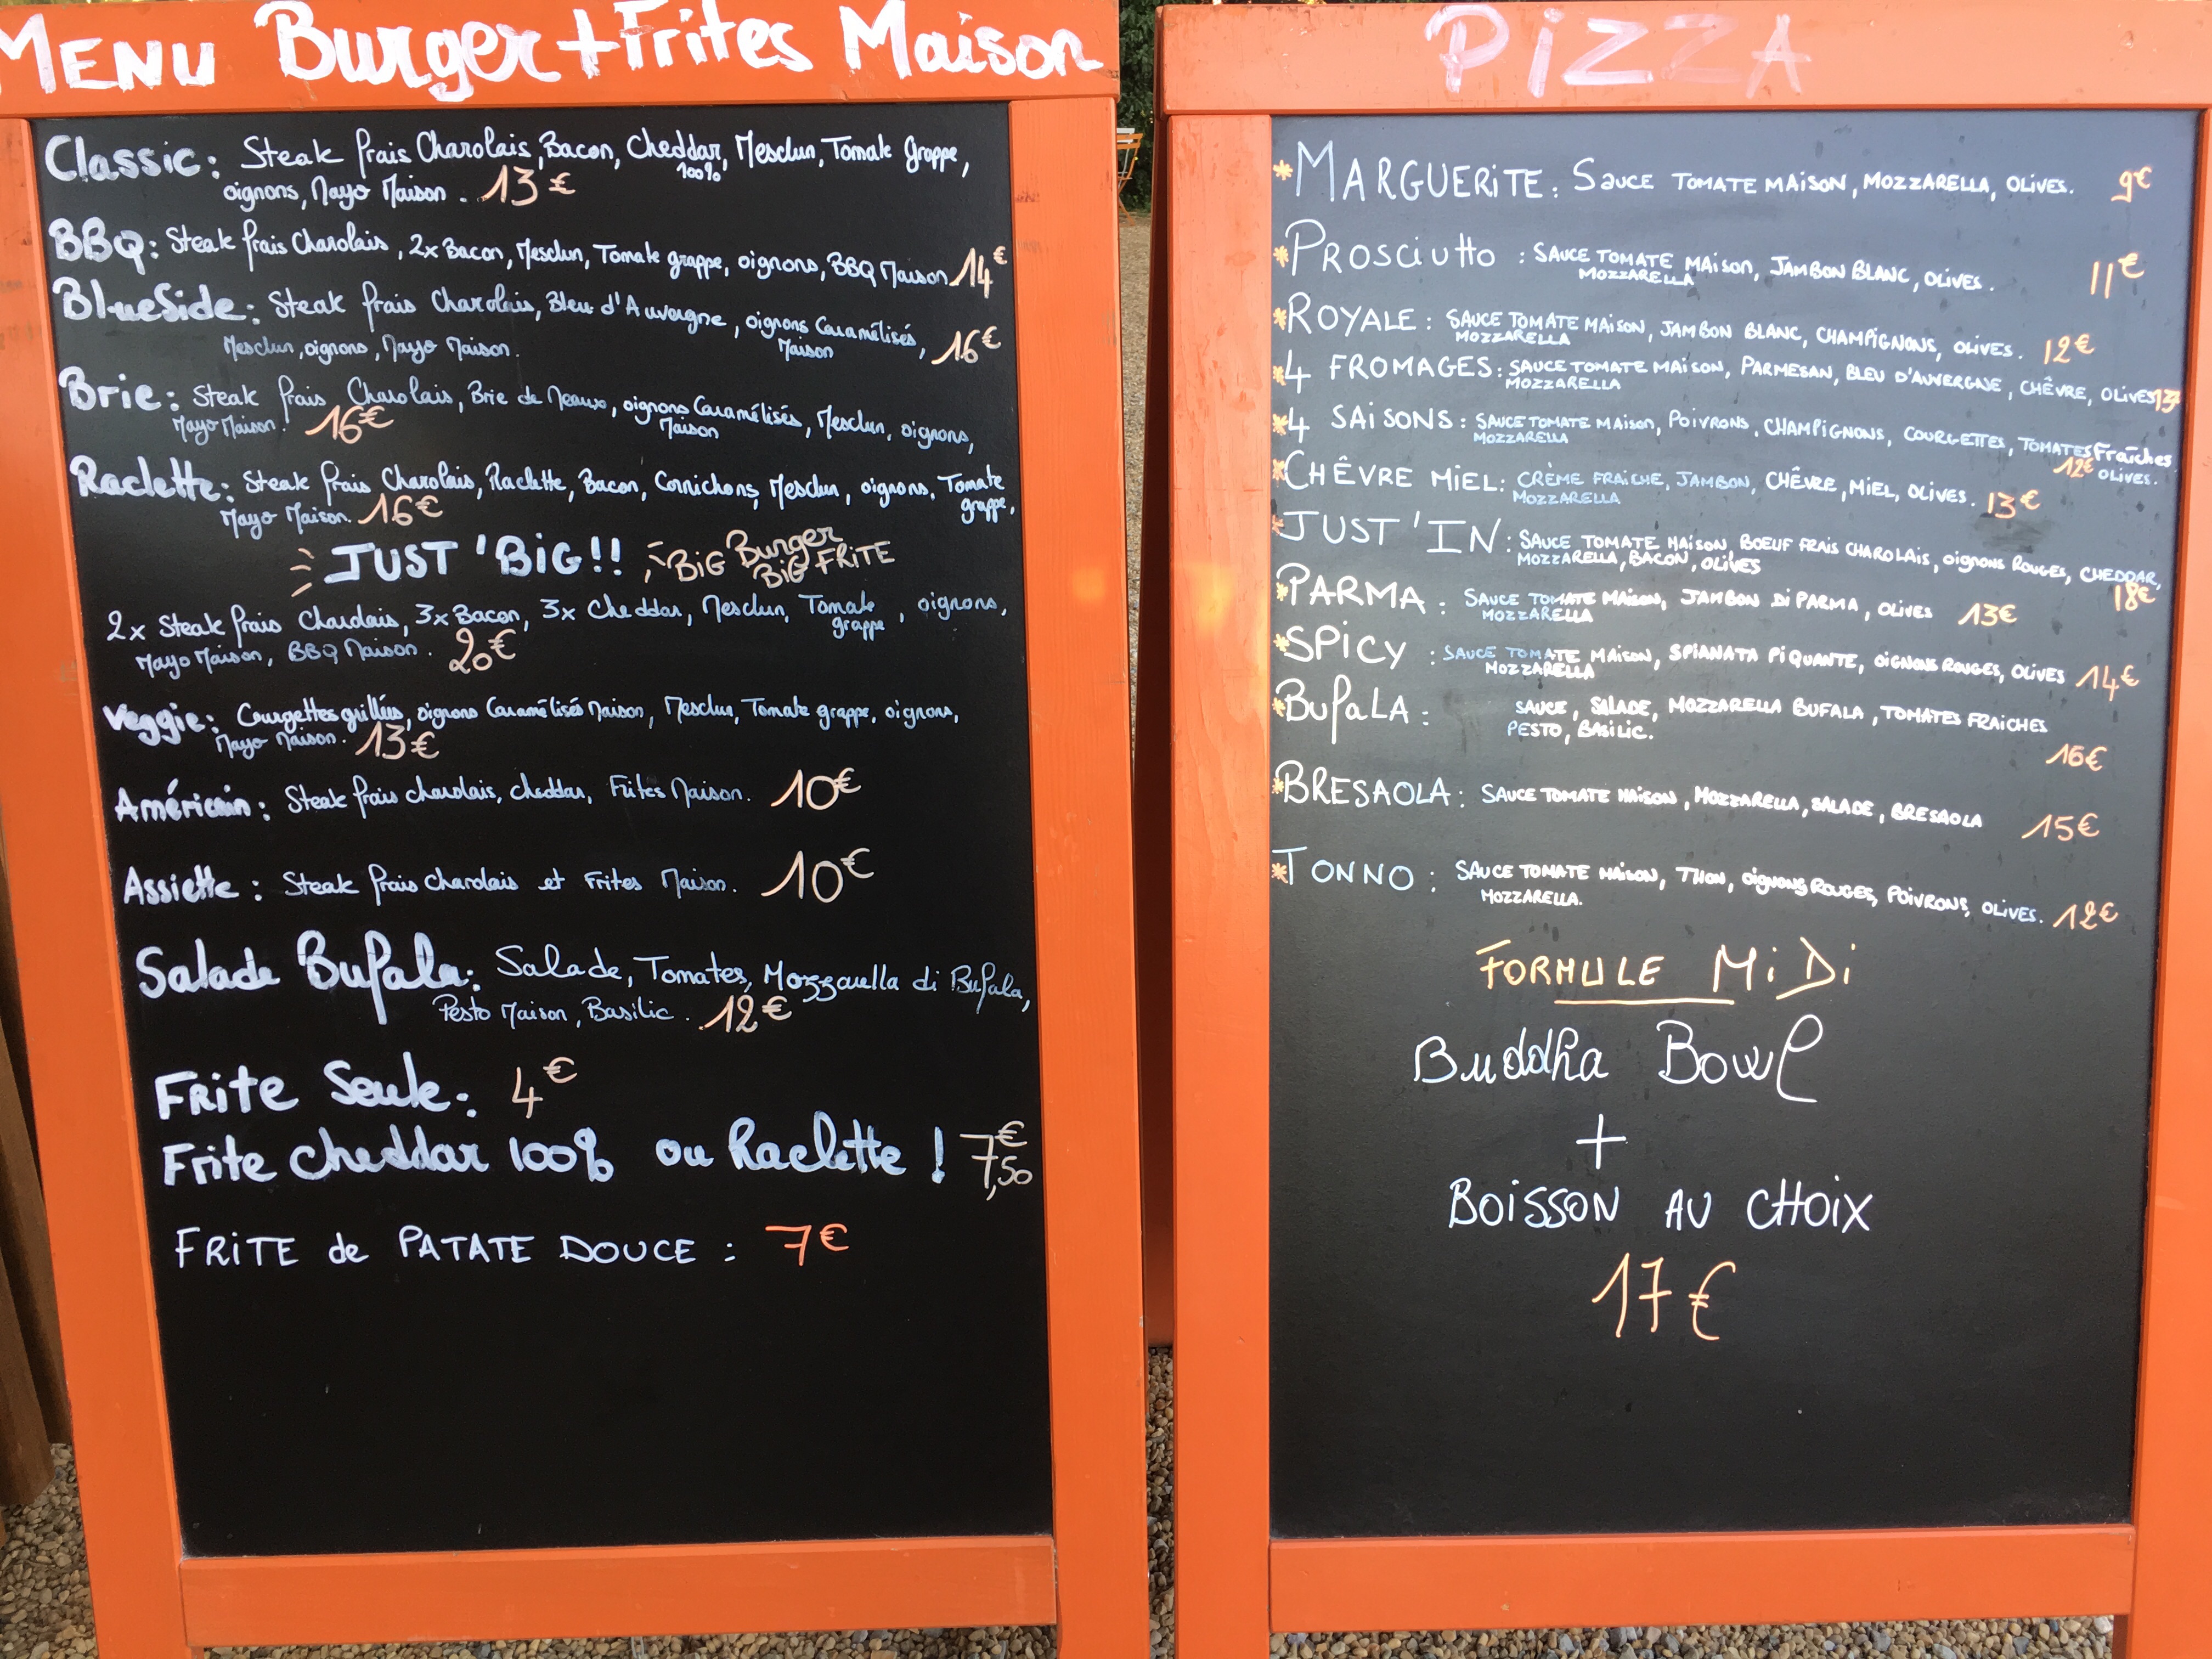 MENU Burger + Frites Maison
Classic: Steak frais Charolais, Bacon, Cheddar, Mesclun, Tomate grappe,
100%
oignons, Mayo Maison. 13€
BBQ: Steak frais Charolais, 2x Bacon, Mesclun, Tomate grappe, oignons, BBQ Maison 14€
BlueSide: Steak frais Charolais, Bleu d'Auvergne, oignons Caramélisés,
Maison
Mesclun, oignons, Mayo Maison. 16€
Brie: Steak frais Charolais, Brie de Meaux, oignons Caramélisés, Mesclun, oignons,
Maison
Mayo Maison. 16€
Raclette: Steak frais Charolais, Raclette, Bacon, Cornichons, Mesclun, oignons, Tomate
grappe,
Mayo Maison. 16€
JUST 'BiG!! BiG Burger
BiG FRiTE
2x Steak frais Charolais, 3x Bacon, 3x Cheddar, Mesclun, Tomate, oignons,
grappe
Mayo Maison, BBQ Maison. 20€
Veggie: Courgettes grillées, oignons Caramélisés Maison, Mesclun, Tomate grappe, oignons,
Mayo Maison. 13€
Américain: Steak frais charolais, cheddar, Frites Maison. 10€
Assiette: Steak frais charolais et Frites Maison. 10€
Salade Bufala: Salade, Tomates, Mozzarella di Bufala,
Pesto Maison, Basilic. 12€
FRite Seule: 4€
Frite cheddar 100% ou Raclette! 7,50€
FRiTE de PATATE DOUCE: 7€
PiZZA
*MARGUERiTE: SAUCE TOMATE MAiSON, MOZZARELLA, OLiVES. 9€
*PROSCiUttO: SAUCE TOMATE MAiSON, JAMBON BLANC, OLiVES. 11€
MOZZARELLA
*ROYALE: SAUCE TOMATE MAiSON, JAMBON BLANC, CHAMPiGNONS, OLiVES. 12€
MOZZARELLA
*4 FROMAGES: SAUCE TOMATE MAiSON, PARMESAN, BLEU D'AUVERGNE, CHÊVRE, OLiVES
MOZZARELLA
*4 SAiSONS: SAUCE TOMATE MAiSON, POiVRONS, CHAMPiGNONS, COURGETTES, TOMATES FRaîches
MOZZARELLA 12€ OLiVES.
*CHÊVRE MiEL: CRÈME FRAiCHE, JAMBON, CHÊVRE, MiEL, OLiVES. 13€
MOZZARELLA
*JUST'IN: SAUCE TOMATE MAiSON, BOEUF FRAiS CHAROLAiS, oignons ROUGES, CHEDDAR,
MOZZARELLA, BACON, OLiVES 18€
*PARMA: SAUCE TOMATE MAiSON, JAMBON Di PARMA, OLiVES 13€
MOZZARELLA
*SPiCY: SAUCE TOMATE MAiSON, SPiANATA PiQUANTE, OiGNONS ROUGES, OLiVES 14€
MOZZARELLA
*BUfaLA: SAUCE, SALADE, MOZZARELLA BUFALA, TOMATES FRAiCHES
PESTO, BASiLiC. 16€
*BRESAOLA: SAUCE TOMATE MAiSON, MOZZARELLA, SALADE, BRESAOLA 15€
*TONNO: SAUCE TOMATE MAiSON, THON, oignons ROUGES, POiVRONS, OLiVES. 12€
MOZZARELLA.
FORMULE MiDi
Buddha Bowl
+
BOiSSON AU CHOiX
17€